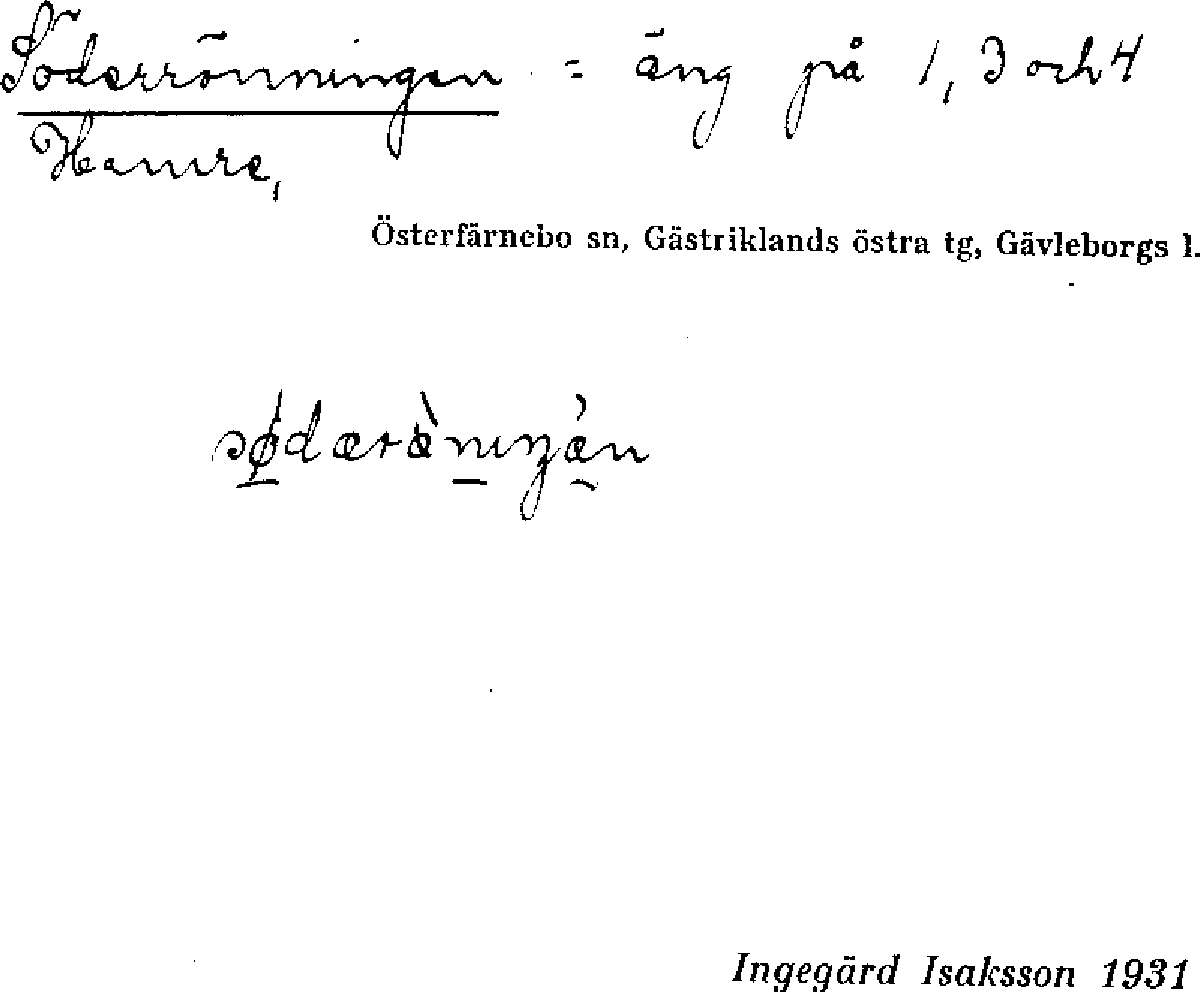 Söderrönningen = äng på 1, 3 och 4
Hamre,
Österfärnebo sn, Gästriklands östra tg, Gävleborgs l.
Ingegärd Isaksson 1931